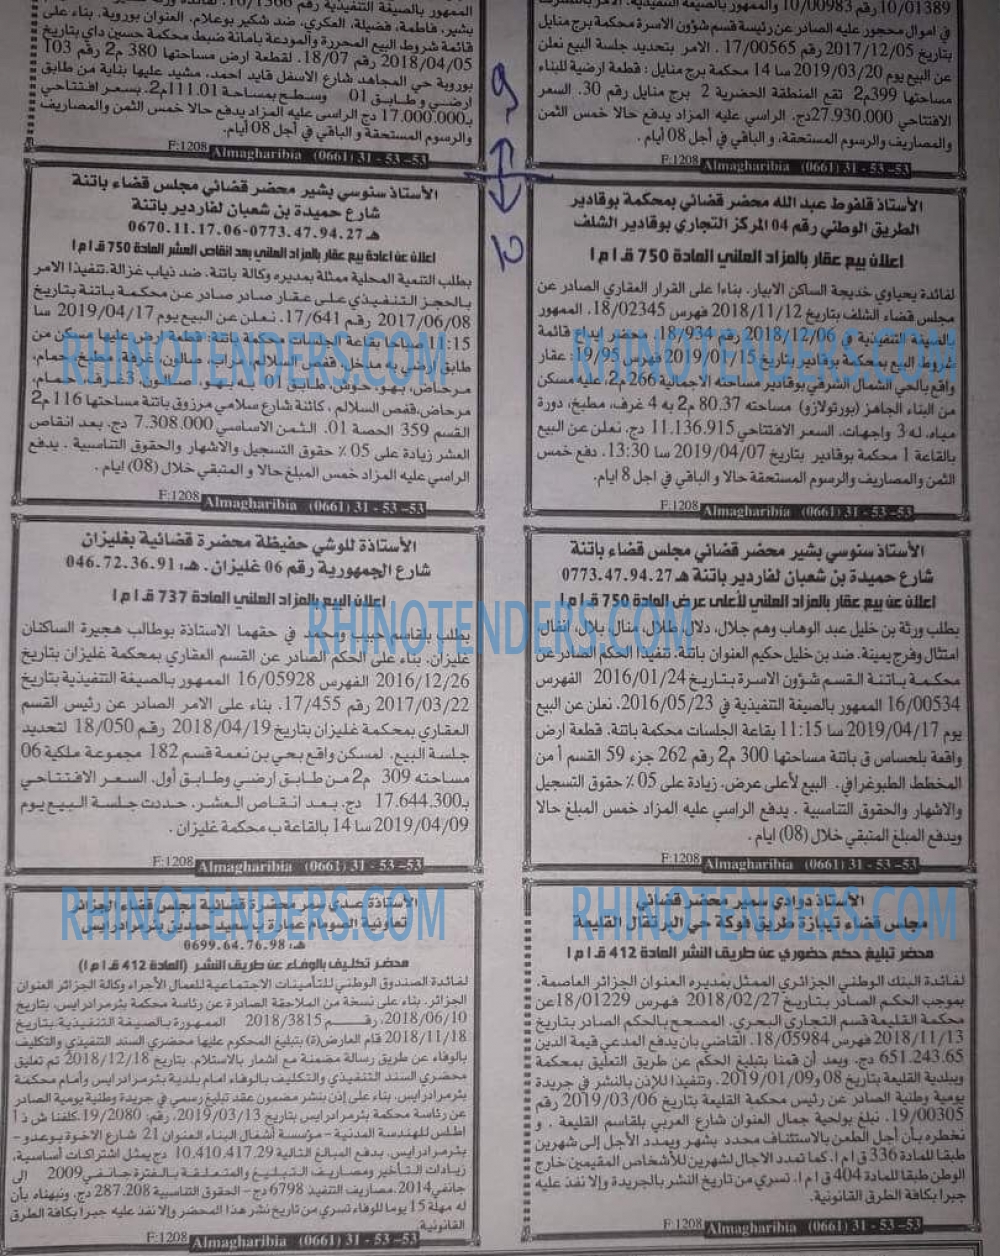 10/01389 رقم 10/00983 والممهور بالصيغة التنفيذية. الامر بالتصرف
في اموال محجور عليه الصادر عن رئيسة قسم شؤون الاسرة محكمة برج منايل
بتاريخ 2017/12/05 رقم 17/00565. الامر بتحديد جلسة البيع نعلن
عن البيع يوم 2019/03/20 سا 14 محكمة برج منايل : قطعة ارضية للبناء
مساحتها 399م2 تقع المنطقة الحضرية 2 برج منايل رقم 30. السعر
الافتتاحي 27.930.000دج. الراسي عليه المزاد يدفع حالا خمس الثمن
والمصاريف والرسوم المستحقة، و الباقي في أجل 08 أيام.
F:1208 Almagharibia (0661) 31 - 53 -53
الممهور بالصيغة التنفيذية
بشير، فاطمة، فضيلة، العكري. ضد شكير بوعلام. العنوان بوروبة. بناء على
قائمة شروط البيع المحررة والمودعة بامانة ضبط محكمة حسين داي بتاريخ
2018/04/05 رقم 18/07. لقطعة ارض مساحتها 380 م2 رقم 103
بوروبة حي المجاهد شارع الاسفل قايد احمد، مشيد عليها بناية من طابق
ارضي و طابق 01 وسطح بمساحة 111.01م2. بسعر افتتاحي
بـ17.000.000 دج الراسي عليه المزاد يدفع حالا خمس الثمن و المصاريف
والرسوم المستحقة و الباقي في أجل 08 أيام.
F:1208 Almagharibia (0661) 31 - 53 -53
الأستاذ قلفوط عبد الله محضر قضائي بمحكمة بوقادير
الطريق الوطني رقم 04 المركز التجاري بوقادير الشلف
اعلان بيع عقار بالمزاد العلني المادة 750 ق ا م ا
لفائدة يحياوي خديجة الساكن الابيار. بناءا على القرار العقاري الصادر عن
مجلس قضاء الشلف بتاريخ 2018/11/12 فهرس 18/02345. الممهور
بالصيغة التنفيذية في 2018/12/06 رقم 18/934. محضر إيداع قائمة
شروط البيع بمحكمة بوقادير بتاريخ 2019/01/15 فهرس 19/95: عقار
واقع بالحي الشمال الشرقي بوقادير مساحته الاجمالية 266م2، عليه مسكن
من البناء الجاهز (بورتولازو) مساحته 80.37 م2 به 4 غرف، مطبخ، دورة
مياه، له 3 واجهات. السعر الافتتاحي 11.136.915 دج. نعلن عن البيع
بالقاعة 1 محكمة بوقادير بتاريخ 2019/04/07 سا 13:30. دفع خمس
الثمن والمصاريف والرسوم المستحقة حالا و الباقي في اجل 8 ايام.
F:1208 Almagharibia (0661) 31 - 53 -53
الأستاذ سنوسي بشير محضر قضائي مجلس قضاء باتنة
شارع حميدة بن شعبان لفاردير باتنة
هـ 0773.47.94.27-0670.11.17.06
اعلان عن اعادة بيع عقار بالمزاد العلني بعد انقاص العشر المادة 750 ق ا م ا
بطلب التنمية المحلية ممثلة بمديره وكالة باتنة. ضد ذياب غزالة. تنفيذا الامر
بالحجز التنفيذي على عقار صادر صادر عن محكمة باتنة بتاريخ
2017/06/08 رقم 17/641. نعلن عن البيع يوم 2019/04/17 سا
11:15 صباحا بقاعة الجلسات محكمة باتنة: قطعة ارض عليها مسكن من
طابق ارضي به مدخل، قفص السلالم، مراب، صالون، غرفة، مطبخ، حمام،
مرحاض، بهو، حوش، طابق 01 به بهو، صالون، 3غرف، حمام،
مرحاض، قفص السلالم . كائنة شارع سلامي مرزوق باتنة مساحتها 116 م2
القسم 359 الحصة 01. الثمن الاساسي 7.308.000 دج. بعد انقاص
العشر زيادة على 05 ٪ حقوق التسجيل والاشهار والحقوق التناسبية . يدفع
الراسي عليه المزاد خمس المبلغ حالا و المتبقي خلال (08) ايام .
F:1208 Almagharibia (0661) 31 - 53 -53
الأستاذ سنوسي بشير محضر قضائي مجلس قضاء باتنة
شارع حميدة بن شعبان لفاردير باتنة هـ 0773.47.94.27
اعلان عن بيع عقار بالمزاد العلني لأعلى عرض المادة 750 ق ا م ا
بطلب ورثة بن خليل عبد الوهاب وهم جلال، دلال، طلال، منال، بلال، انفال،
امتثال وفرح يمينة. ضد بن خليل حكيم العنوان باتنة. تنفيذا الحكم الصادر عن
محكمة باتنة القسم شؤون الاسرة بتاريخ 2016/01/24 الفهرس
16/00534 الممهور بالصيغة التنفيذية في 2016/05/23. نعلن عن البيع
يوم 2019/04/17 سا 11:15 بقاعة الجلسات محكمة باتنة. قطعة ارض
واقعة بلحساس ق باتنة مساحتها 300 م2 رقم 262 جزء 59 القسم أ من
المخطط الطبوغرافي. البيع لأعلى عرض. زيادة على 05 ٪ حقوق التسجيل
والاشهار والحقوق التناسبية . يدفع الراسي عليه المزاد خمس المبلغ حالا
ويدفع المبلغ المتبقي خلال (08) ايام .
F:1208 Almagharibia (0661) 31 - 53 -53
الأستاذة للوشي حفيظة محضرة قضائية بغليزان
شارع الجمهورية رقم 06 غليزان. هـ: 046.72.36.91
اعلان البيع بالمزاد العلني المادة 737 ق ا م ا
بطلب بلقاسم حبيب ومحمد في حقهما الاستاذة بوطالب هجيرة الساكنان
غليزان. بناء على الحكم الصادر عن القسم العقاري بمحكمة غليزان بتاريخ
2016/12/26 الفهرس 16/05928 الممهور بالصيغة التنفيذية بتاريخ
2017/03/22 رقم 17/455. بناء على الامر الصادر عن رئيس القسم
العقاري بمحكمة غليزان بتاريخ 2018/04/19 رقم 18/050 لتحديد
جلسة البيع. لمسكن واقع بحي بن نعمة قسم 182 مجموعة ملكية 06
مساحته 309 م2 من طابق ارضي وطابق أول. السعر الافتتاحي
بـ17.644.300 دج. بعد انقاص العشر. حددت جلسة البيع يوم
2019/04/09 سا 14 بالقاعة ب محكمة غليزان .
F:1208 Almagharibia (0661) 31 - 53 -53
الأستاذ دوادي سمير محضر قضائي
مجلس قضاء تيبازة طريق فوكة حي البرتقال القليعة
محضر تبليغ حكم حضوري عن طريق النشر المادة 412 ق ا م ا
لفائدة البنك الوطني الجزائري الممثل بمديره العنوان الجزائر العاصمة.
بموجب الحكم الصادر بتاريخ 2018/02/27 فهرس 18/01229عن
محكمة القليعة قسم التجاري البحري. المصحح بالحكم الصادر بتاريخ
2018/11/13 فهرس 18/05984. القاضي بان يدفع المدعي قيمة الدين
651.243.65 دج. وبعد أن قمنا بتبليغ الحكم عن طريق التعليق بمحكمة
وببلدية القليعة بتاريخ 08 و2019/01/09. وتنفيذا للإذن بالنشر في جريدة
يومية وطنية الصادر عن رئيس محكمة القليعة بتاريخ 2019/03/06 رقم
19/00305. نبلغ بولحية جمال العنوان شارع العربي بلقاسم القليعة . و
نخطره بأن أجل الطعن بالاستئناف محدد بشهر ويمدد الأجل إلى شهرين
طبقا للمادة 336 ق ا م ا. كما تمدد الاجال لشهرين للأشخاص المقيمين خارج
الوطن طبقا للمادة 404 ق ا م ا. تسري من تاريخ النشر بالجريدة وإلا نفذ عليه
جبرا بكافة الطرق القانونية.
F:1208 Almagharibia (0661) 31 - 53 -53
الأستاذة عدي سمر محضرة قضائية مجلس قضاء الجزائر
تعاونية الصومام عمارة ب سعيد حمدين بئرمرادرايس
هـ: 0699.64.76.98
محضر تكليف بالوفاء عن طريق النشر (المادة 412 ق ا م ا)
لفائدة الصندوق الوطني للتأمينات الاجتماعية للعمال الأجراء وكالة الجزائر العنوان
الجزائر. بناء على نسخة من الملاحقة الصادرة عن رئاسة محكمة بئرمرادرايس، بتاريخ
2018/06/10، رقم 2018/3815 الممهورة بالصيغة التنفيذية بتاريخ
2018/11/18 قام العارض(ة) بتبليغ المحكوم عليها محضري السند التنفيذي والتكليف
بالوفاء عن طريق رسالة مضمنة مع اشعار بالاستلام. بتاريخ 2018/12/18 تم تعليق
محضري السند التنفيذي والتكليف بالوفاء امام بلدية بئرمرادرايس وأمام محكمة
بئرمرادرايس. بناء على إذن بنشر مضمون عقد تبليغ رسمي في جريدة وطنية يومية الصادر
عن رئاسة محكمة بئرمرادرايس بتاريخ 2019/03/13، رقم: 19/2080. كلفنا ش ذ ا
اطلس للهندسة المدنية - مؤسسة أشغال البناء العنوان 21 شارع الاخوة بوعدو -
بئرمرادرايس. بدفع المبالغ التالية 10.410.417.29 دج يمثل اشتراكات أساسية،
زيادات التأخير ومصاريف التبليغ والمتعلقة بالفترة جانفي 2009 الى
جانفي 2014. مصاريف التنفيذ 6798 دج - الحقوق التناسبية 287.208 دج. ونبهناه بأن
له مهلة 15 يوما للوفاء تسري من تاريخ نشر هذا المحضر وإلا نفذ عليه جبرا بكافة الطرق
القانونية.
F:1208 Almagharibia (0661) 31 - 53 -53
RHINOTENDERS.COM
RHINOTENDERS.COM
RHINOTENDERS.COM
RHINOTENDERS.COM
RHINOTENDERS.COM